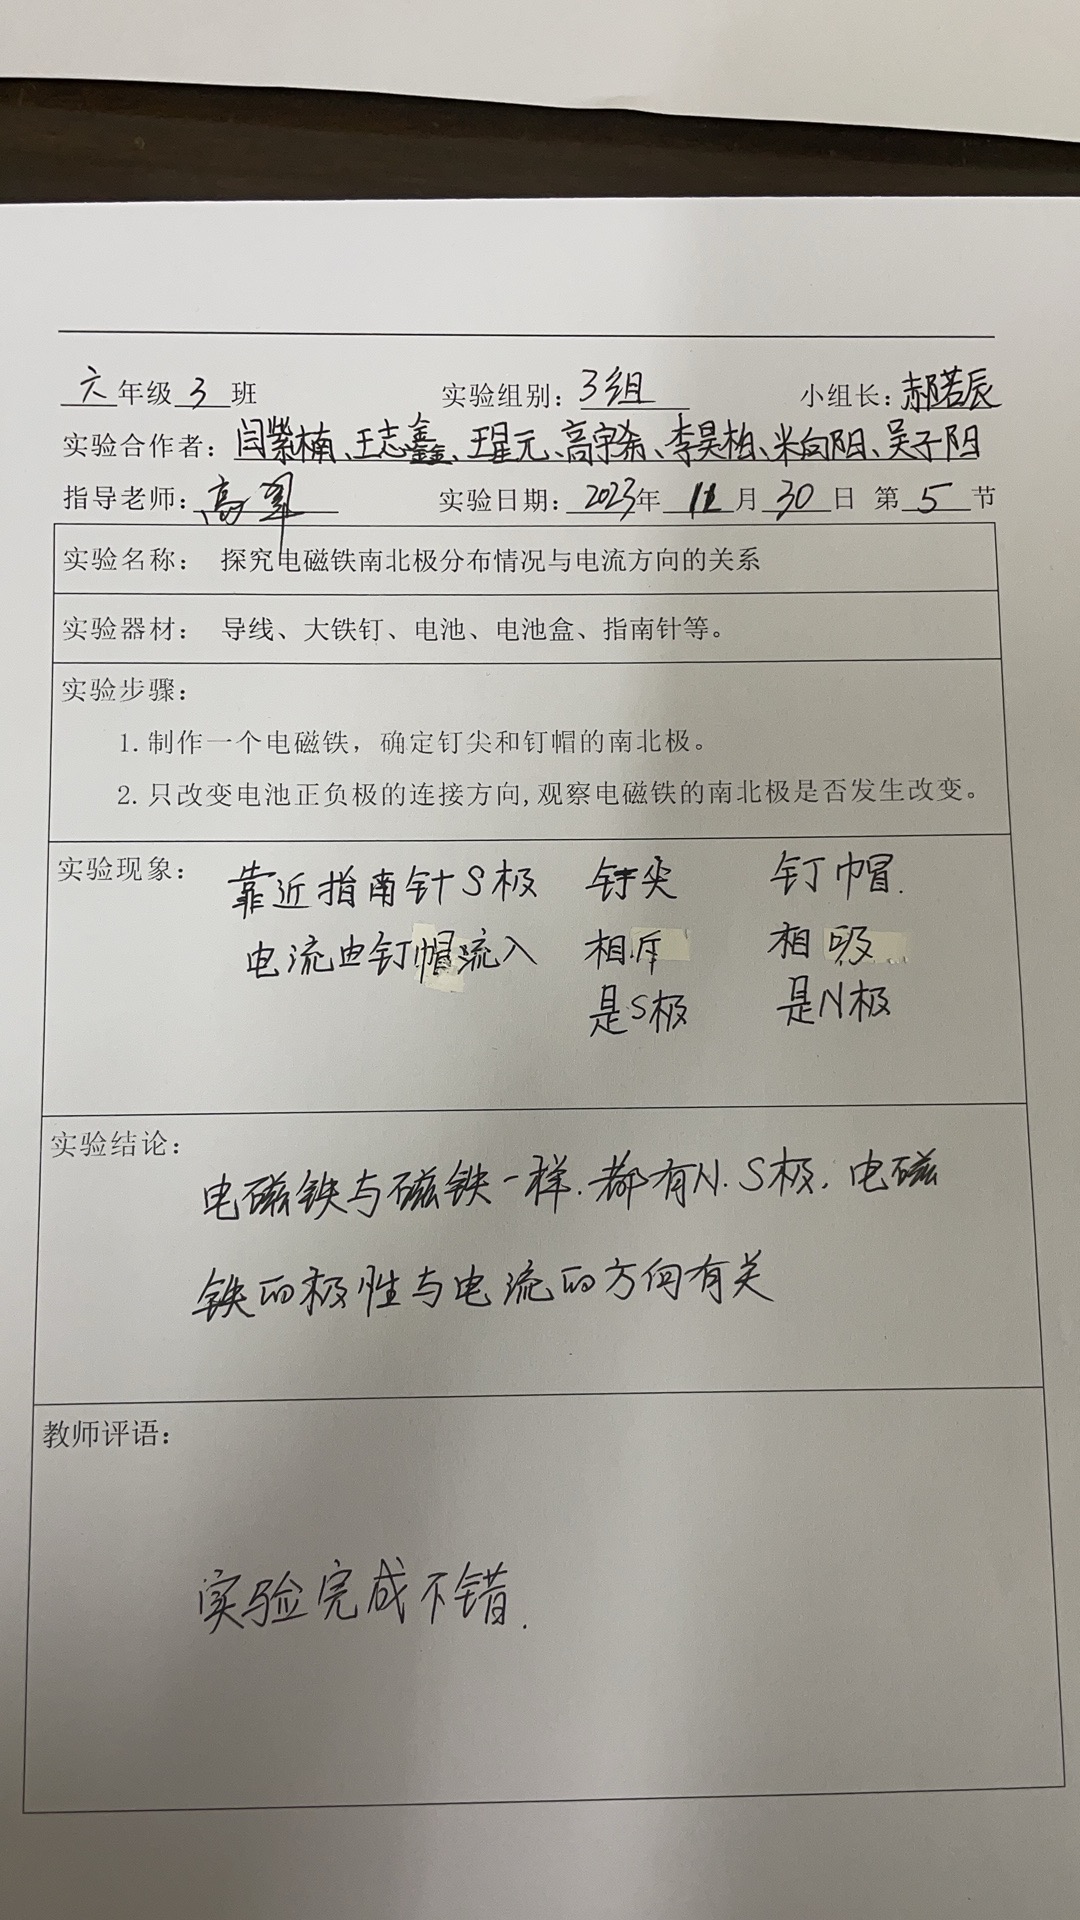 六年级 3 班 实验组别：3组 小组长：郝若辰
实验合作者：闫紫楠、王志鑫、王星元、高宇希、李昊柏、米向阳、吴子阳
指导老师：高 实验日期：2023年 11 月 30 日 第 5 节
实验名称： 探究电磁铁南北极分布情况与电流方向的关系
实验器材： 导线、大铁钉、电池、电池盒、指南针等。
实验步骤：
1.制作一个电磁铁，确定钉尖和钉帽的南北极。
2.只改变电池正负极的连接方向,观察电磁铁的南北极是否发生改变。
实验现象： 靠近指南针S极 钉尖 钉帽.
电流由钉帽流入 相斥 相吸
是S极 是N极
实验结论：
电磁铁与磁铁一样.都有N.S极.电磁
铁的极性与电流的方向有关
教师评语：
实验完成不错.